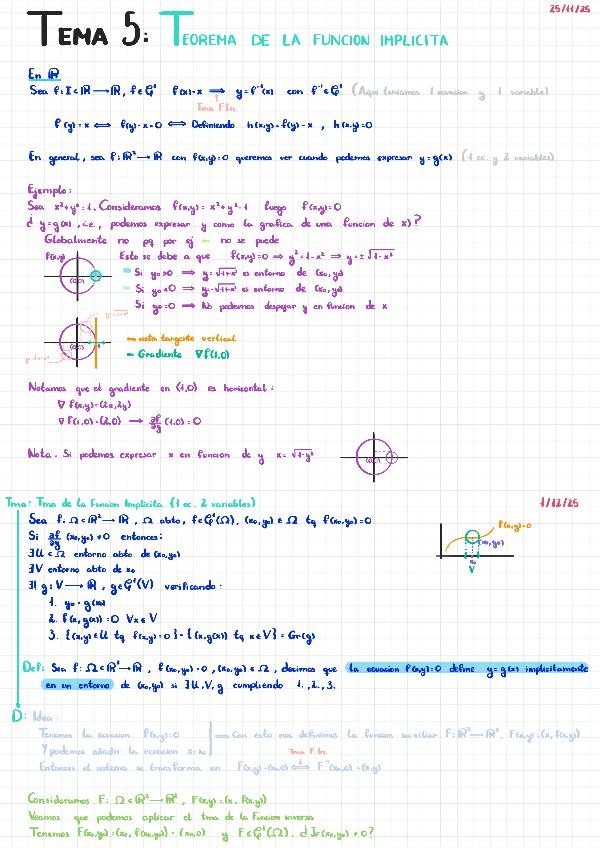 25/11/25
TEMA 5: TEOREMA DE LA FUNCION IMPLICITA
En ℝ
Sea f: I⊂ℝ → ℝ, f∈C¹ f(x)=x ⟹ y=f⁻¹(x) con f⁻¹∈C¹ (Aqui teniamos 1 ecuacion y 1 variable)
Tma F.In.
f(y)=x ⟺ f(y)-x=0 ⟺ Definiendo h(x,y)=f(y)-x, h(x,y)=0
En general, sea f: ℝ² → ℝ con f(x,y)=0 queremos ver cuando podemos expresar y=g(x) (1 ec. y 2 variables)
Ejemplo:
Sea x²+y²=1. Consideramos f(x,y)=x²+y²-1 luego f(x,y)=0
¿ y=g(x), i.e., podemos expresar y como la grafica de una funcion de x)?
Globalmente no pq por ej — no se puede
f(x,y) Esto se debe a que f(x,y)=0 ⟹ y²=1-x² ⟹ y=±√1-x²
(0,0) Si y₀>0 ⟹ y=√1-x² es entorno de (x₀,y₀)
Si y₀<0 ⟹ y=-√1-x² es entorno de (x₀,y₀)
Si y₀=0 ⟹ No podemos despejar y en funcion de x
y=√1-x²
(0,0)
— recta tangente vertical
— Gradiente ∇f(1,0)
y=-√1-x²
Notamos que el gradiente en (1,0) es horizontal:
∇f(x,y)=(2x,2y)
∇f(1,0)=(2,0) → ∂f/∂y (1,0)=0
Nota. Si podemos expresar x en funcion de y x=√1-y²
(0,0)
Tma: Tma de la Funcion Implicita (1 ec. 2 variables)
1/12/25
Sea f: Ω⊂ℝ² → ℝ, Ω abto, f∈C¹(Ω), (x₀,y₀)∈Ω tq f(x₀,y₀)=0
Si ∂f/∂y (x₀,y₀)≠0 entonces:
∃U⊂Ω entorno abto de (x₀,y₀)
∃V entorno abto de x₀
∃! g: V → ℝ, g∈C¹(V) verificando:
1. y₀=g(x₀)
2. f(x,g(x))=0 ∀x∈V
3. {(x,y)∈U tq f(x,y)=0}={(x,g(x)) tq x∈V}=Gr(g)
f(x,y)=0
(x₀,y₀)
x₀
V
Def: Sea f: Ω⊂ℝ² → ℝ, f(x₀,y₀)=0, (x₀,y₀)∈Ω, decimos que la ecuacion f(x,y)=0 define y=g(x) implicitamente
en un entorno de (x₀,y₀) si ∃U,V,g cumpliendo 1., 2., 3.
D: Idea:
Tenemos la ecuacion f(x,y)=0
Y podemos añadir la ecuacion x=x₀
⟹ Con esto nos definimos la funcion auxiliar F: ℝ² → ℝ², F(x,y)=(x,f(x,y))
Tma F. In.
Entonces el sistema se transforma en F(x,y)=(x₀,0) ⟺ F⁻¹(x₀,0)=(x,y)
Consideramos F: Ω⊂ℝ² → ℝ², F(x,y)=(x,f(x,y))
Veamos que podemos aplicar el tma de la Funcion inversa
Tenemos F(x₀,y₀)=(x₀,f(x₀,y₀))=(x₀,0) y F∈C¹(Ω). ¿JF(x₀,y₀)≠0?